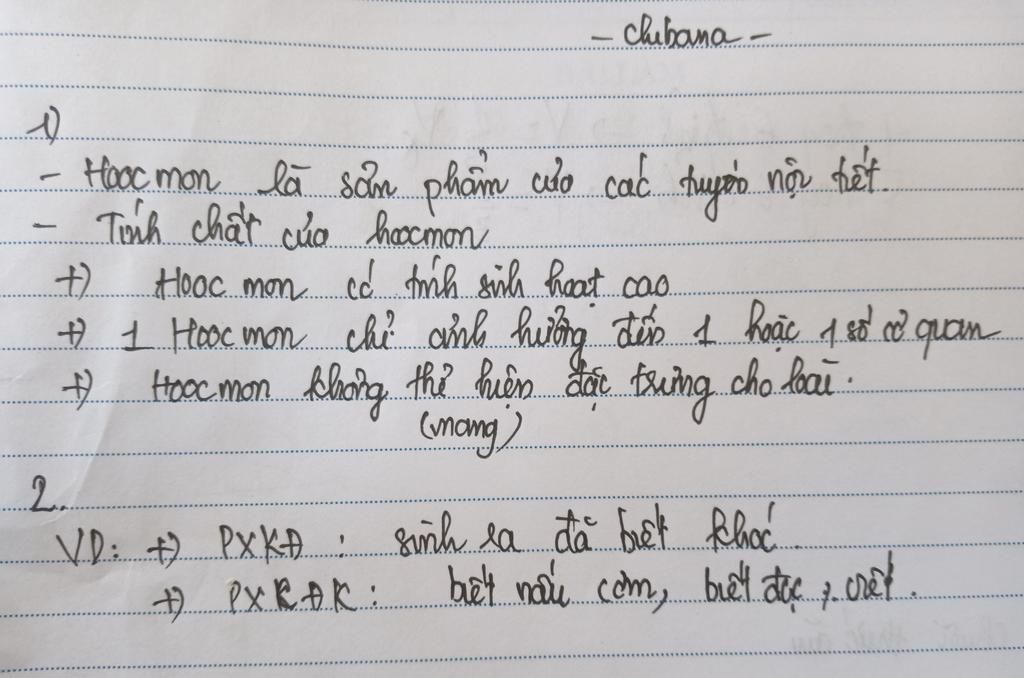 - Chibana -
1)
- Hoocmon là sản phẩm của các tuyến nội tiết.
- Tính chất của hoocmon
+) Hooc mon có tính sinh hoạt cao
+) 1 Hoocmon chỉ ảnh hưởng đến 1 hoặc 1 số cơ quan
+) Hoocmon không thể hiện đặc trưng cho loài.
(mang)
2.
VD: +) PXKĐ : sinh ra đã biết khóc.
+) PXKĐK : biết nấu cơm, biết đọc, viết.